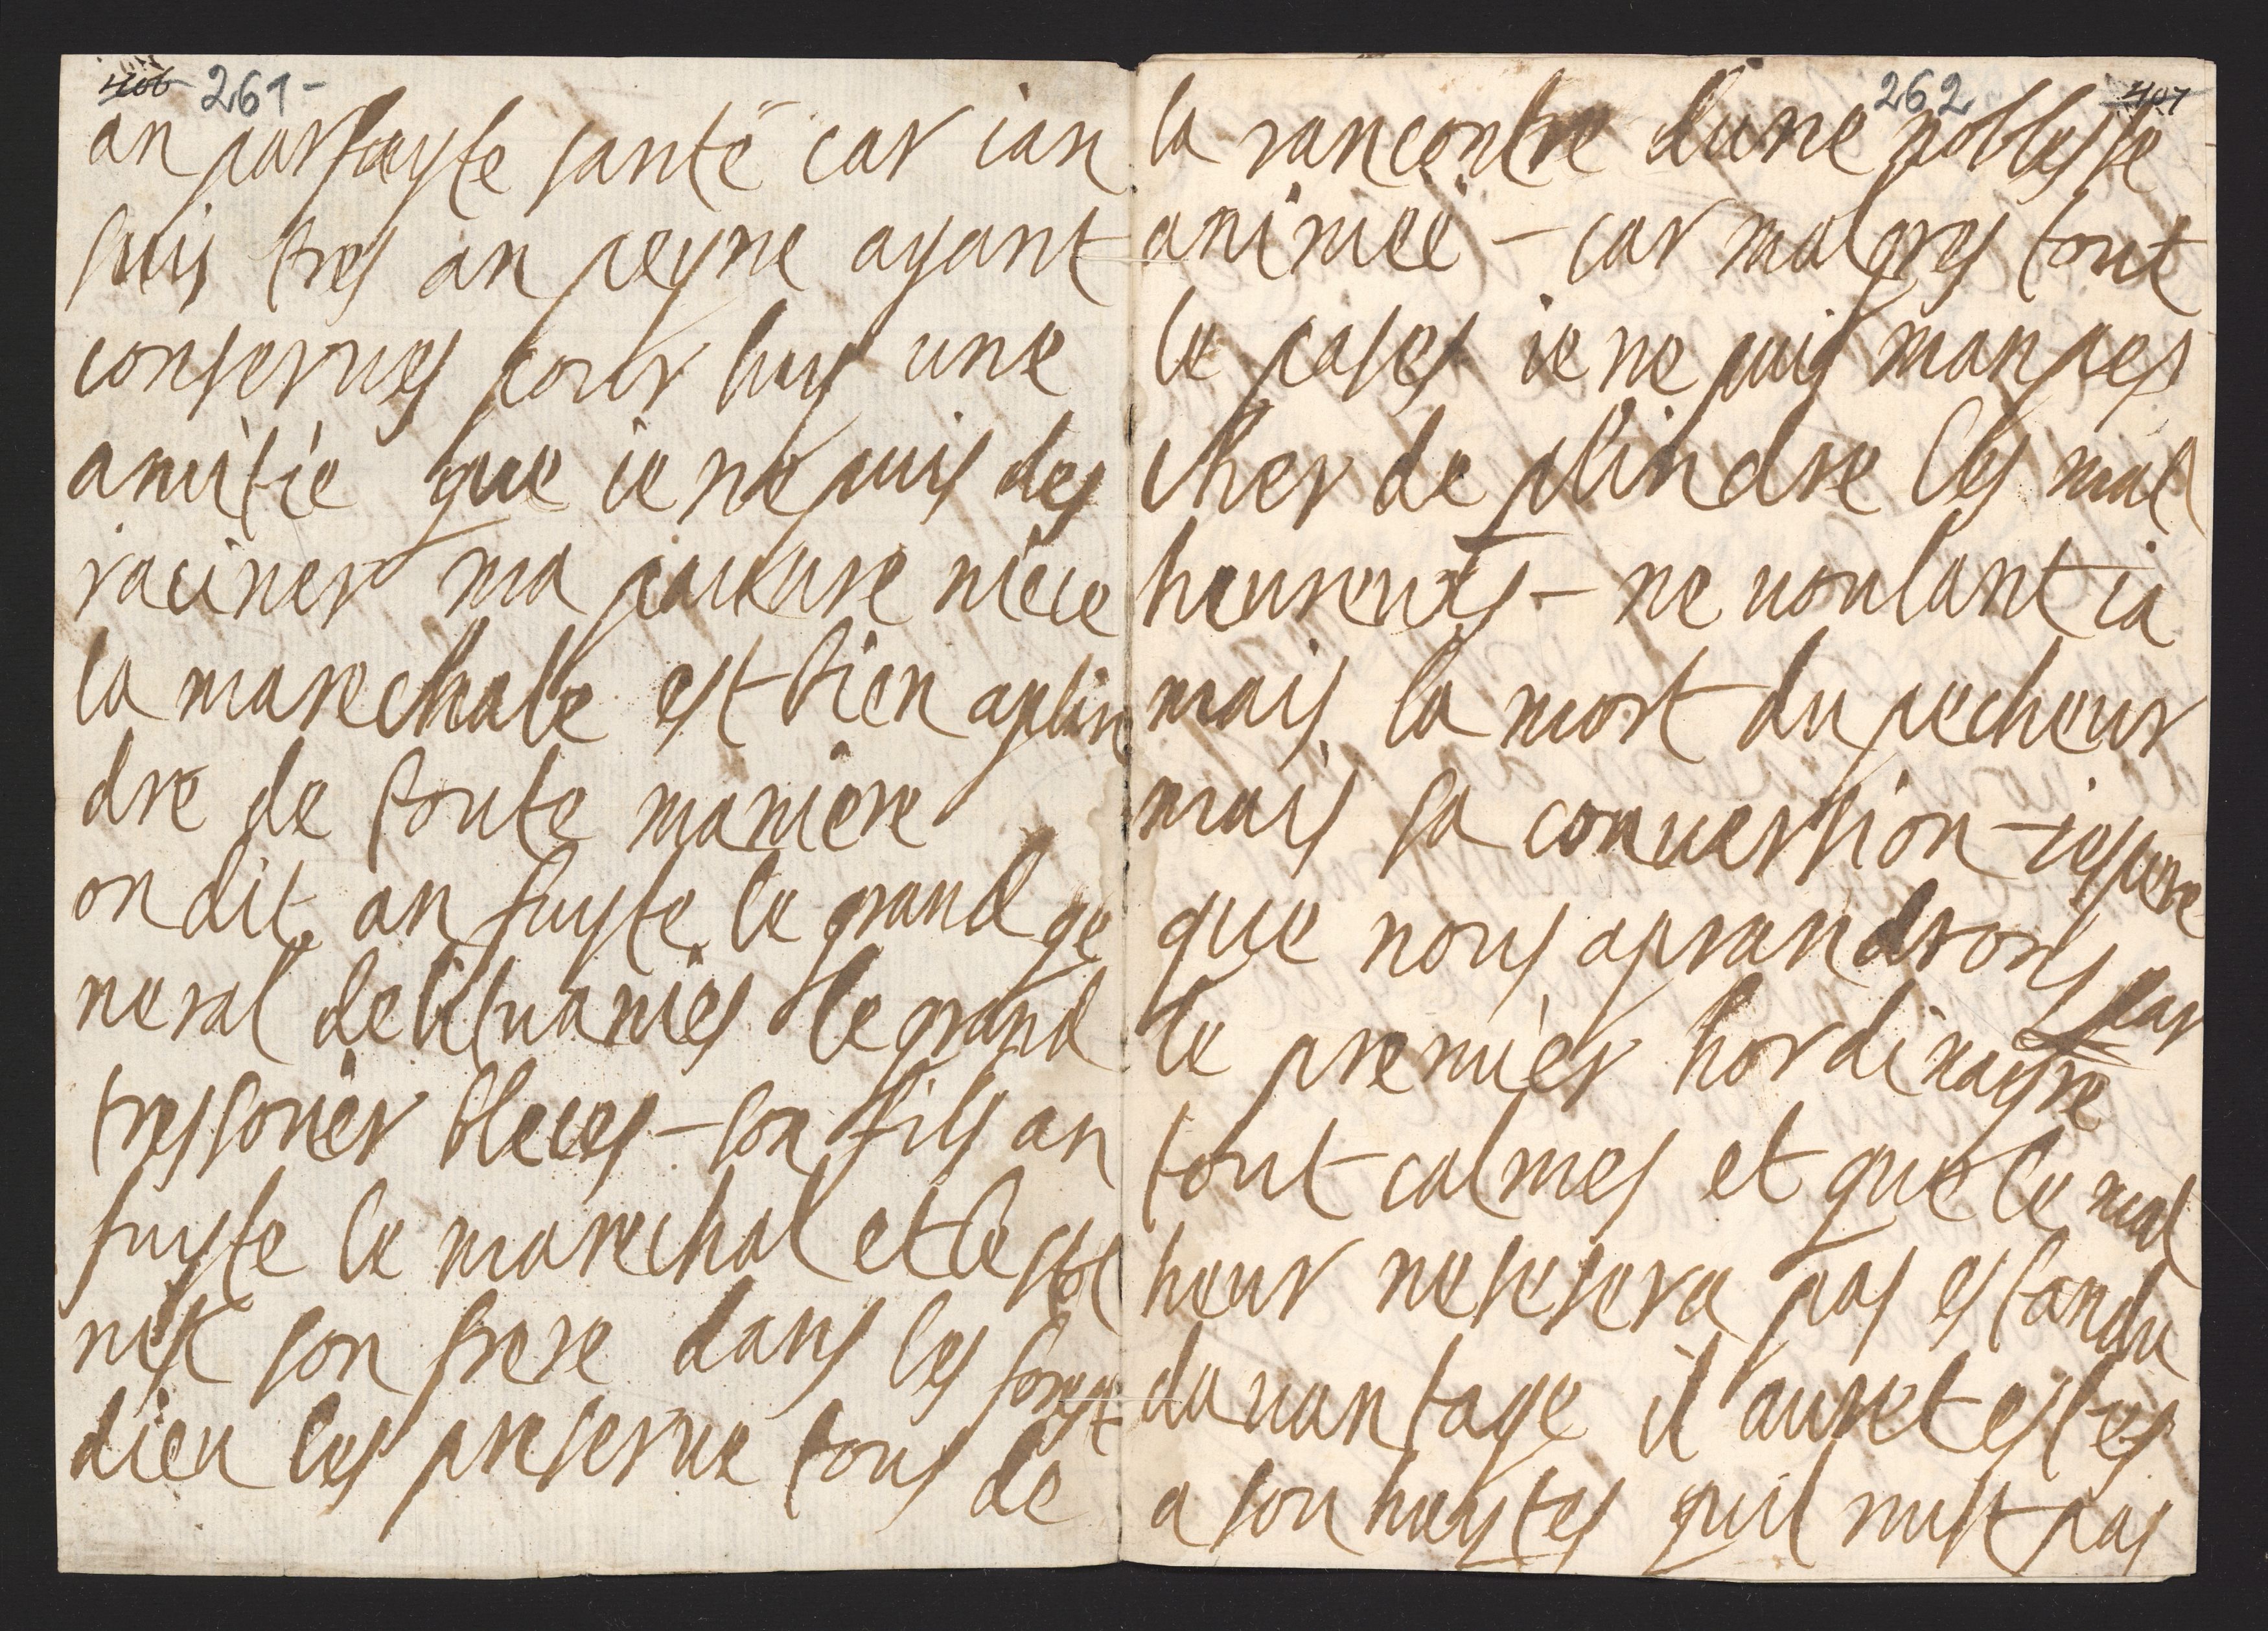 406 261-
an parfayte santé car ian
suis tres an peyne ayant
conserves pour luy une
amitie que ie ne puis des
raciner ma pauvre niece
la marechalle est bien aplin
dre de toute maniere
on dit an fuyte le grand ge
neral delituanies le grand
tressorier bleces - son fils an
fuyte le marechal et le
son frere dans les
dieu les preserve tous de
262 407
la rancontre dune noblesse
animéé - car malgres tout
le pases ie ne puis manpes
cher de plindre les mal
heureux - ne voulant ia
mais la mort du pecheur
mais sa conversion - iespere
que nous aprandrons par
le premier hordinayre
tout calmes et que le mal
heur nesesera pas estandu
davantage il auret estes
a souhaytes quil nust pas